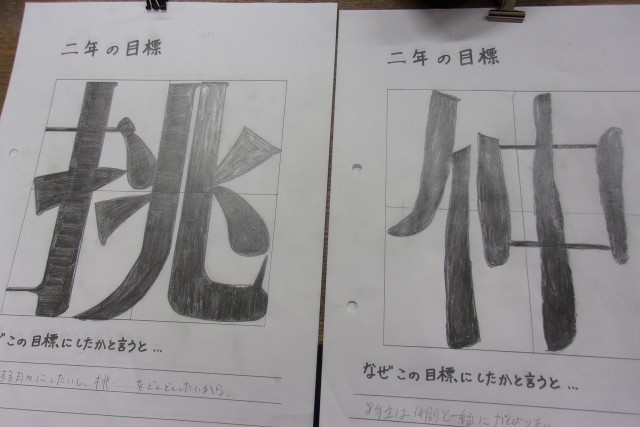 二年の目標
挑
ぜこの目標にしたかと言うと…
にしたいし、挑 をどんどんしたいから。
二年の目標
仲
なぜこの目標にしたかと言うと…